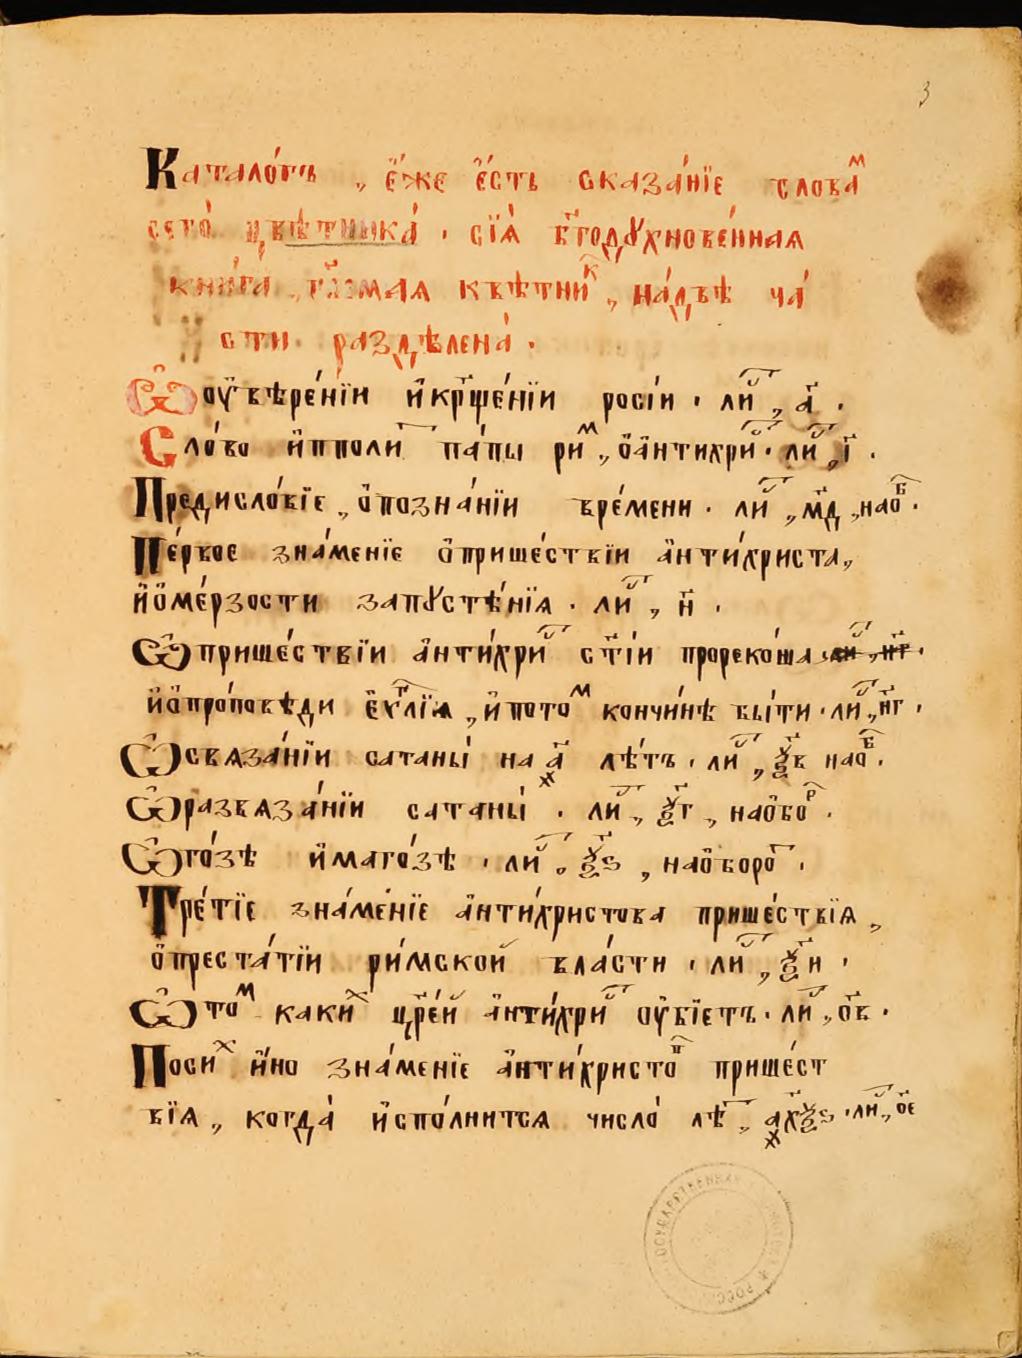 3
Каталогъ „ є҆́же є҆́сть сказа́нїе слова́ⷨ
сего̀ цвѣтника́ . сїѧ̀ бг҃одꙋхнове́ннаѧ
кни́га „ гл҃емаѧ квѣтниⷦ҇ „ на́двѣ ча́
сти раздѣлена̀ .
Ѽ оу҆вѣре́нїи и҆крⷭ҇ще́нїи росі́и . лиⷭ҇т „ а҃ .
Сло́во и҆пполиⷮ па́пы риⷨ „ о҆а҆нтихриⷭ҇т . лиⷭ҇т „ і҃ .
Предисло́вїе „ о҆позна́нїи вре́мени . лиⷭ҇т „ м҃д „ наѻⷠ҇ .
Пе́рвое зна́менїе о҆прише́ствїи а҆нти́христа „
и҆ѻ҆ме́рзости запꙋстѣ́нїѧ . лиⷭ҇т „ н҃ .
Ѽ прише́ствїи а҆нти́хриⷭ҇т ст҃і́и прореко́ша
и҆ѻ҆про́повѣди є҆ѵⷢ҇лїѧ „ и҆потоⷨ кончи́нѣ бы́ти . лиⷭ҇т „ н҃г .
Ѽ свѧза́нїи сатаны̀ на ҂а҃ лѣ́тъ . лиⷭ҇т „ ѯ҃в наѻⷠ҇ .
Ѽ развѧза́нїи сатаны̀ . лиⷭ҇т „ ѯ҃г „ наѻ҆боⷬ҇ .
Ѽ го́зѣ и҆маго́зѣ . лиⷭ҇т . ѯ҃ѕ „ наѻ҆бороⷮ .
Тре́тїе зна́менїе а҆нти́христова прише́ствїѧ „
о҆преста́тїи ри́мской вла́сти . лиⷭ҇т „ ѯ҃и .
Ѽ тоⷨ какиⷯ цр҃е́й а҆нти́хриⷭ҇т оу҆бїе́тъ . лиⷭ҇т „ о҃в .
Посиⷯ и҆́но зна́менїе а҆нти́христоⷡ прише́ст
вїѧ „ когда̀ и҆спо́лнитсѧ число̀ лѣⷮ „ ҂а҃хѯѕ . лиⷭ҇т „ о҃е